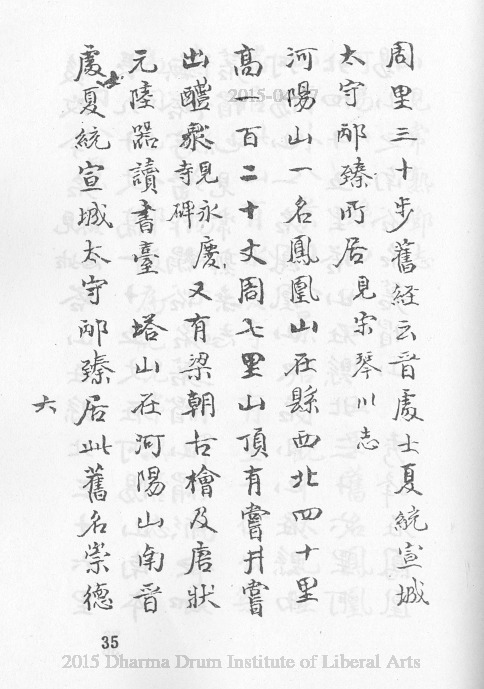 周里三十步舊經云晉處士夏統宣城
太守邴臻所居見宋琴川志
河陽山一名鳳凰山在縣西北四十里
高一百二十丈周七里山頂有嘗井嘗
出醴泉見永慶寺碑又有梁朝古檜及唐狀
元陸器讀書臺 塔山在河陽山南晉
處士夏統宣城太守邴臻居此舊名崇德
六
35
2015 Dharma Drum Institute of Liberal Arts